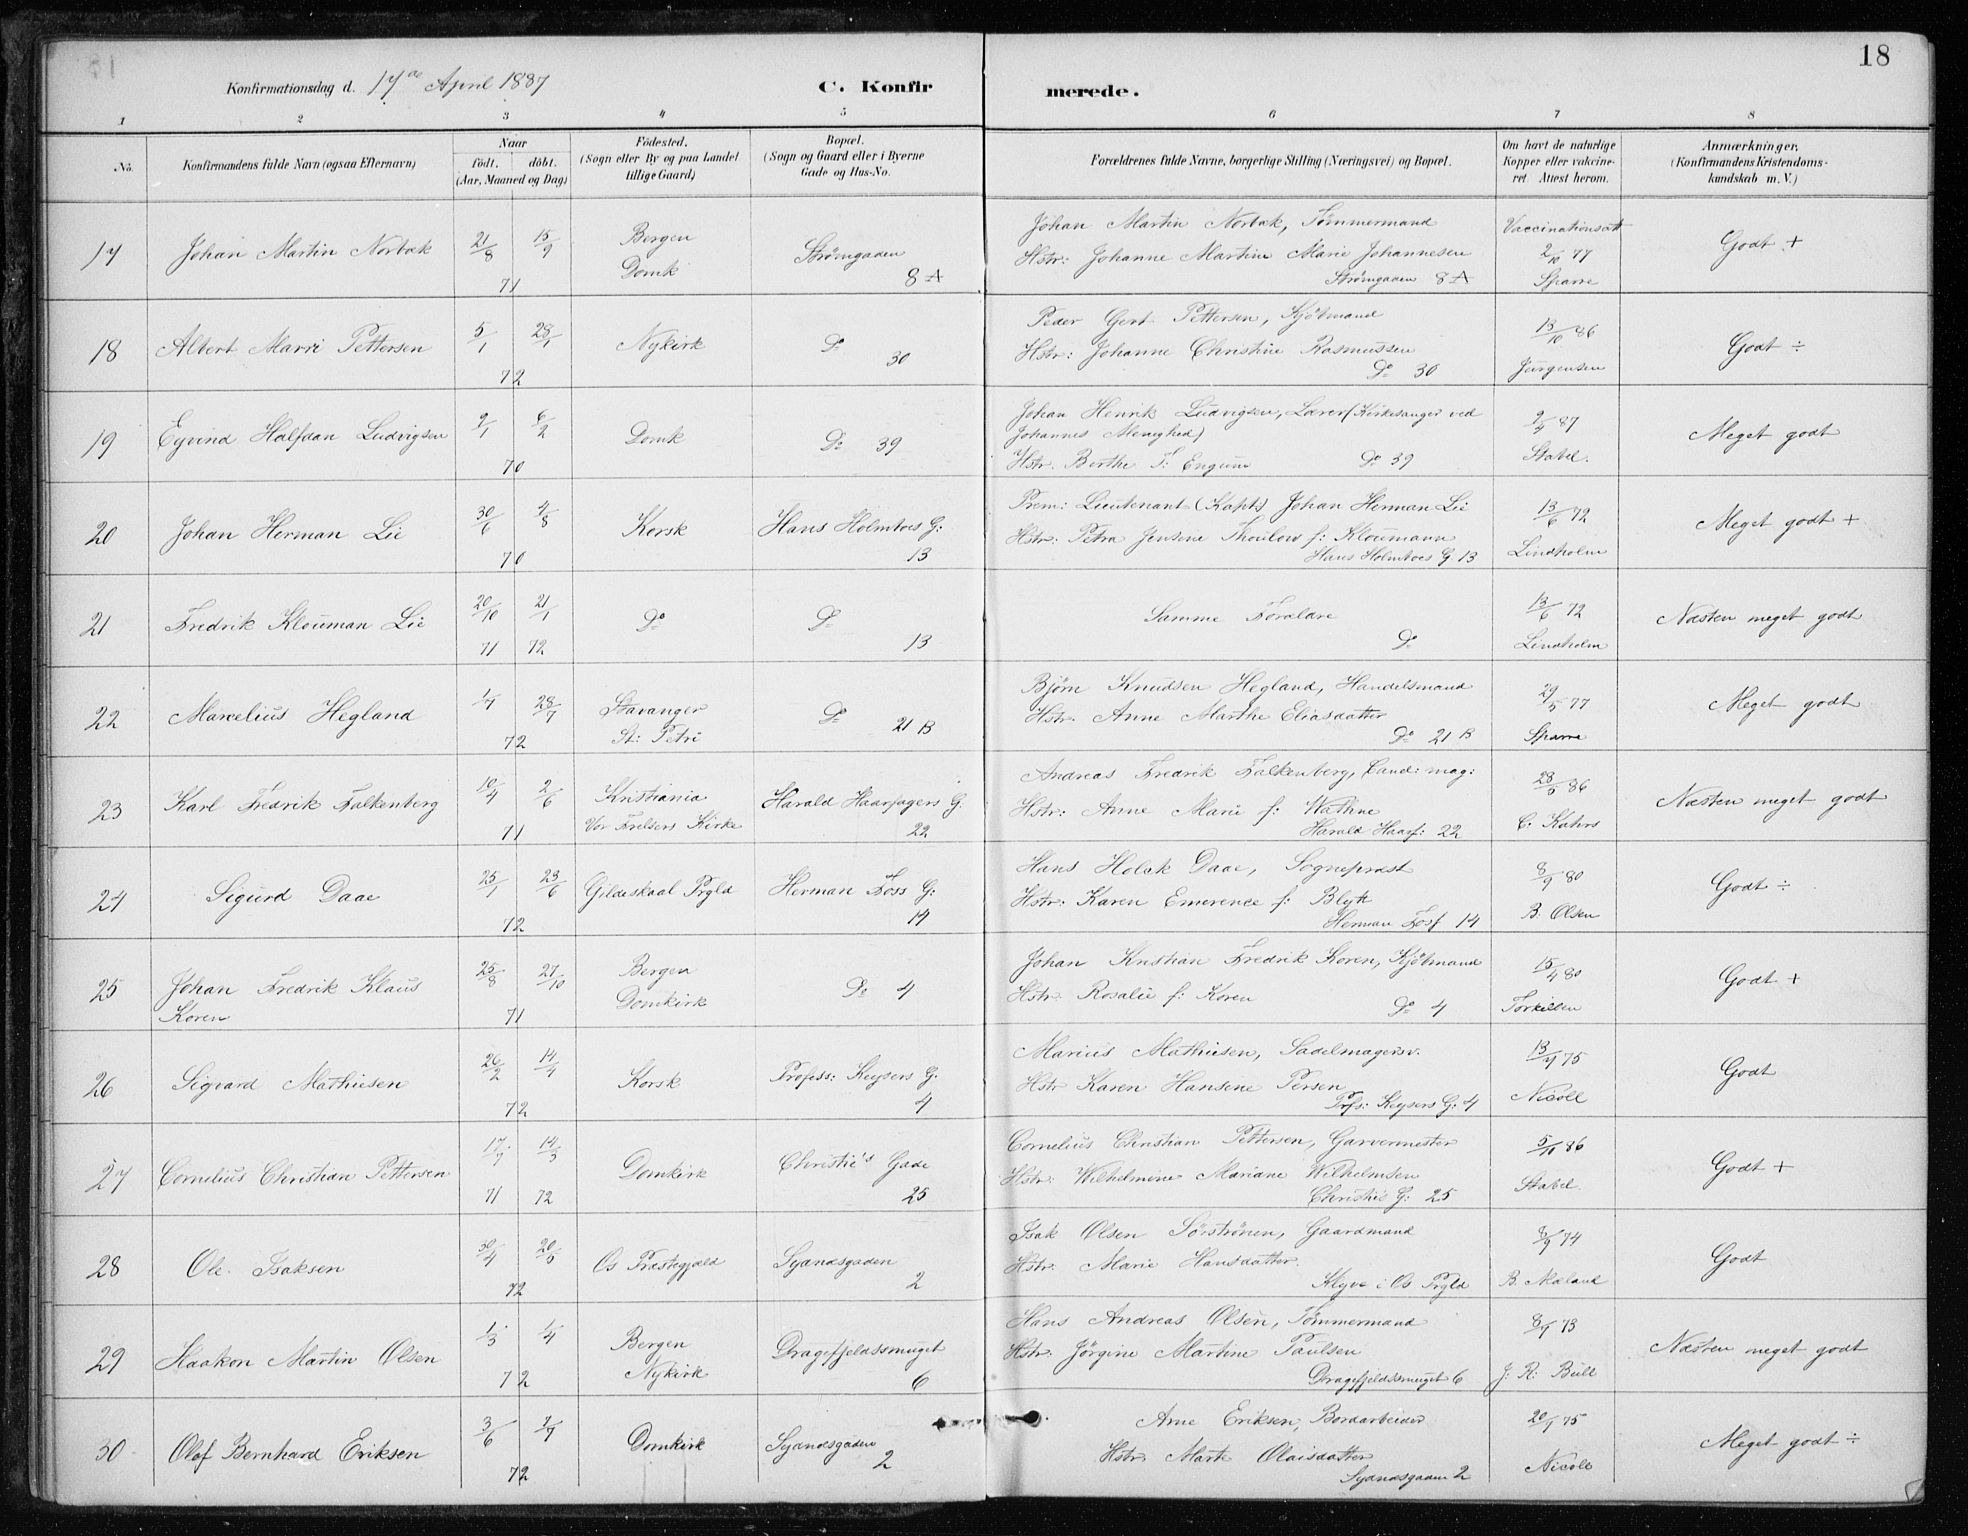 18
Konfirmationsdag d. 17de April 1887
C. Konfirmerede.
1 2 3 4 5 6 7 8
No. Konfirmandens fulde Navn (ogsaa Efternavn)
Naar födt. döbt. (Aar, Maaned og Dag)
Födested. (Sogn eller By og paa Landet tillige Gaard)
Bopæl. (Sogn og Gaard eller i Byerne Gade og Hus-No.
Forældrenes fulde Navne, borgerlige Stilling (Næringsvei) og Bopæl.
Om havt de naturlige Kopper eller vaccineret. Attest herom.
Anmærkninger, (Konfirmandens Kristendomskundskab m. V.)
17 Johan Martin Norbæk 21/8 15/9 71 Bergen Domk Strømgaden 8 A
Johan Martin Norbæk, Tømmermand
Hstr: Johanne Martine Marie Johannesen
Strømgaden 8 A
Vaccinationsatt 2/10 77 Sparre
Godt +
18 Albert Marri Pettersen 5/1 28/1 72 Nykirk Do 30
Peder Gert Pettersen, Kjøbmand
Hstr: Johanne Christine Rasmussen
Do 30
13/10 86 Jürgensen
Godt ÷
19 Eyvind Halfdan Ludvigsen 9/1 6/2 70 Domk Do 39
Johan Henrik Ludvigsen, Lærer (Kirkesanger ved
Johannes Menighed)
Hstr. Berthe T: Engum Do 39
2/3 87 Stabel.
Meget godt
20 Johan Herman Lie 30/6 4/8 70 Korsk Hans Holmboes G: 13
Prem: Lieutenant (Kapt:) Johan Herman Lie
Hstr: Petra Jensine Thoulow f: Kloumann
Hans Holmboes G. 13
13/6 72 Lindholm
Meget godt +
21 Fredrik Klouman Lie 20/10 21/1 71 72 Do Do 13
Samme Forældre
Do
13/6 72 Lindholm
Næsten meget godt
22 Marcelius Hegland 1/7 28/7 72 Stavanger St: Petri Do 21 B
Bjørn Knudsen Hegland, Handelsmand
Hstr. Anne Marthe Eliasdatter
Do 21 B
29/5 77 Sparre
Meget godt
23 Karl Fredrik Falkenberg 10/4 2/6 71 Kristiania Vor Frelsers Kirke Harald Haarfagers G. 22
Andreas Fredrik Falkenberg, Cand: mag:
Hstr: Anne Marie f: Wathne
Harald Haarf: 22
28/5 86 C. Kahrs
Næsten meget godt
24 Sigurd Daae 25/1 23/6 72 Gildeskaal Prgld Herman Foss G: 14
Hans Holck Daae, Sogneprest
Hstr: Karen Emerence f: Blytt
Herman Fosf 14
8/9 80 B. Olsen
Godt ÷
25 Johan Fredrik Klaus Koren 25/8 27/10 71 Bergen Domkirk Do 4
Johan Kristian Fredrik Koren, Kjøbmand
Hstr. Rosalie f: Koren
Do 4
15/4 80 Torkilsen
Godt +
26 Sigvard Mathiesen 26/2 14/4 72 Korsk Profess: Keysers G. 4
Marius Mathiesen, Sadelmagersv.
Hstr Karen Hansene Persen
Prfs: Keysers G: 4
Nicoll
Godt
27 Cornelius Christian Pettersen 17/7 14/3 71 72 Domkirk Christie's Gade 25
Cornelius Christian Pettersen, Garvermester
Hstr: Wilhelmine Mariane Wilhelmsen
Christie's G: 25
5/11 86 Stabel.
Godt +
28 Ole Isaksen 30/4 20/5 72 Os Præstegjæld Sydnæsgaden 2
Isak Olsen Sörströnen, Gaardmand
Hstr. Marie Hansdatter.
Klyve i Os Prgld
8/9 74 B. Mæland
Godt
29 Haakon Martin Olsen 1/3 1/4 72 Bergen Nykirk Dragefjeldssmuget 6
Hans Andreas Olsen, Tømmermand
Hstr: Jörgine Martine Paulsen
Dragefjeldssmuget 6
8/9 73 J. R: Bull
Næsten meget godt
30 Olaf Bernhard Eriksen 3/6 7/7 72 Domkirk Sydnæsgaden 2
Arne Eriksen, Bordarbeider
Hstr. Marte Olaisdatter
Sydnæsgaden 2
20/1 75 Nicoll
Meget godt ÷